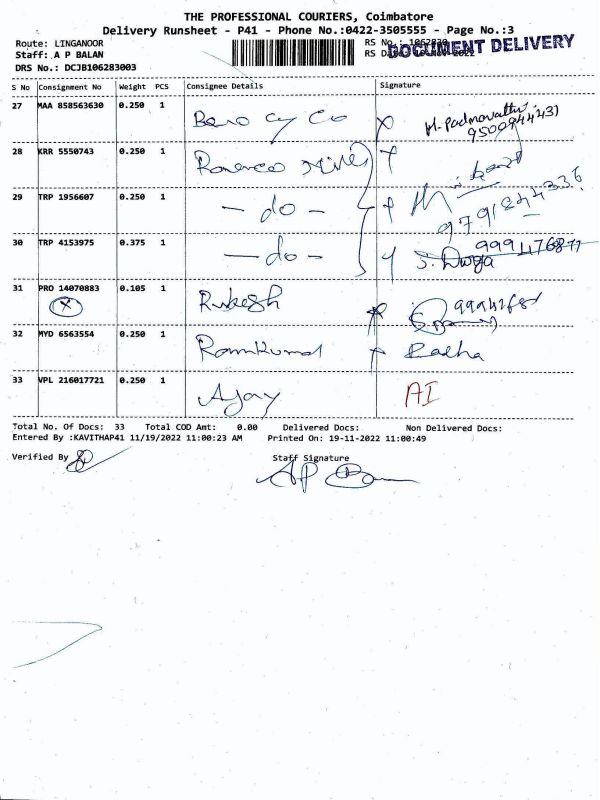 THE PROFESSIONAL COURIERS, Coimbatore
Delivery Runsheet - P41 - Phone No.:0422-3505555 - Page No.:3
Route: LINGANOOR
Staff: A P BALAN
DRS No.: DCJB106283003
RS No.:
DOCUMENT DELIVERY
S No Consignment No Weight PCS Consignee Details Signature
27 MAA 858563630 0.250 1
28 KRR 5550743 0.250 1
29 TRP 1956607 0.250 1 - do -
9791844336
30 TRP 4153975 0.375 1 - do - 9994476877
31 PRO 14070883 0.105 1 Rukesh
X
32 MYD 6563554 0.250 1 Ramkumar Radha
33 VPL 216017721 0.250 1 Ajay AI
Total No. Of Docs: 33 Total COD Amt: 0.00 Delivered Docs: Non Delivered Docs:
Entered By :KAVITHAP41 11/19/2022 11:00:23 AM Printed On: 19-11-2022 11:00:49
Verified By Staff Signature